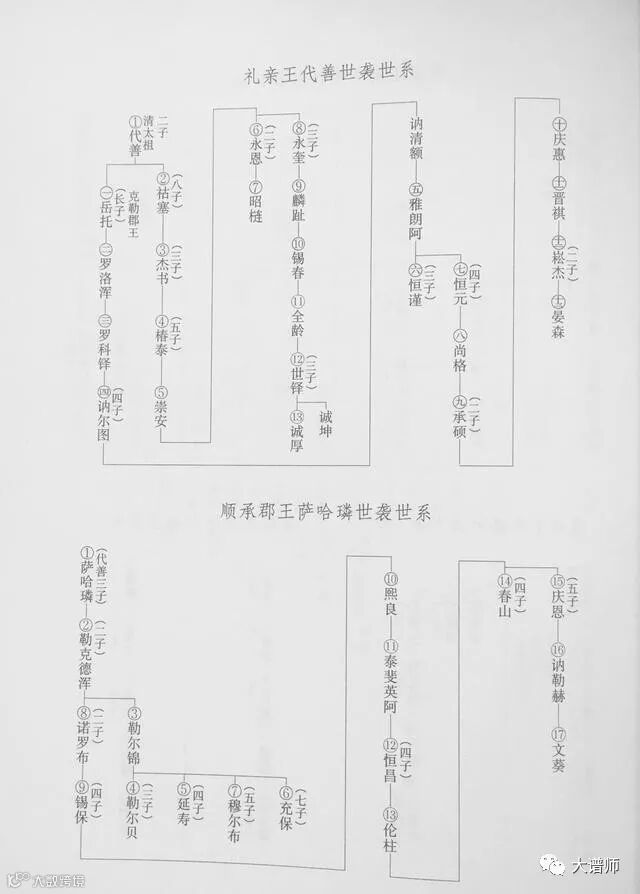 礼亲王代善世袭世系
二子
清太祖
①代善
㊀岳托
(长子)
克勒郡王
㊁罗洛浑
㊂罗科铎
㊃讷尔图
(四子)
②祜塞
(八子)
③杰书
(三子)
④椿泰
(五子)
⑤崇安
⑥永恩
(二子)
⑦昭梿
⑧永奎
(三子)
⑨麟趾
⑩锡春
⑪全龄
⑫世铎
(三子)
⑬诚厚
诚坤
讷清额
㊄雅朗阿
㊅恒谨
(三子)
㊆恒元
(四子)
㊇尚格
㊈承硕
(二子)
㊉庆惠
晋祺
崧杰
(二子)
晏森
顺承郡王萨哈璘世袭世系
①萨哈璘
(代善三子)
②勒克德浑
(二子)
③勒尔锦
④勒尔贝
(三子)
⑤延寿
(四子)
⑦穆尔布
(五子)
⑥充保
(七子)
⑧诺罗布
(二子)
⑨锡保
(四子)
⑩熙良
⑪泰斐英阿
⑫恒昌
(四子)
⑬伦柱
⑭春山
(四子)
⑮庆恩
(五子)
⑯讷勒赫
⑰文葵
大数跨境
大谱师